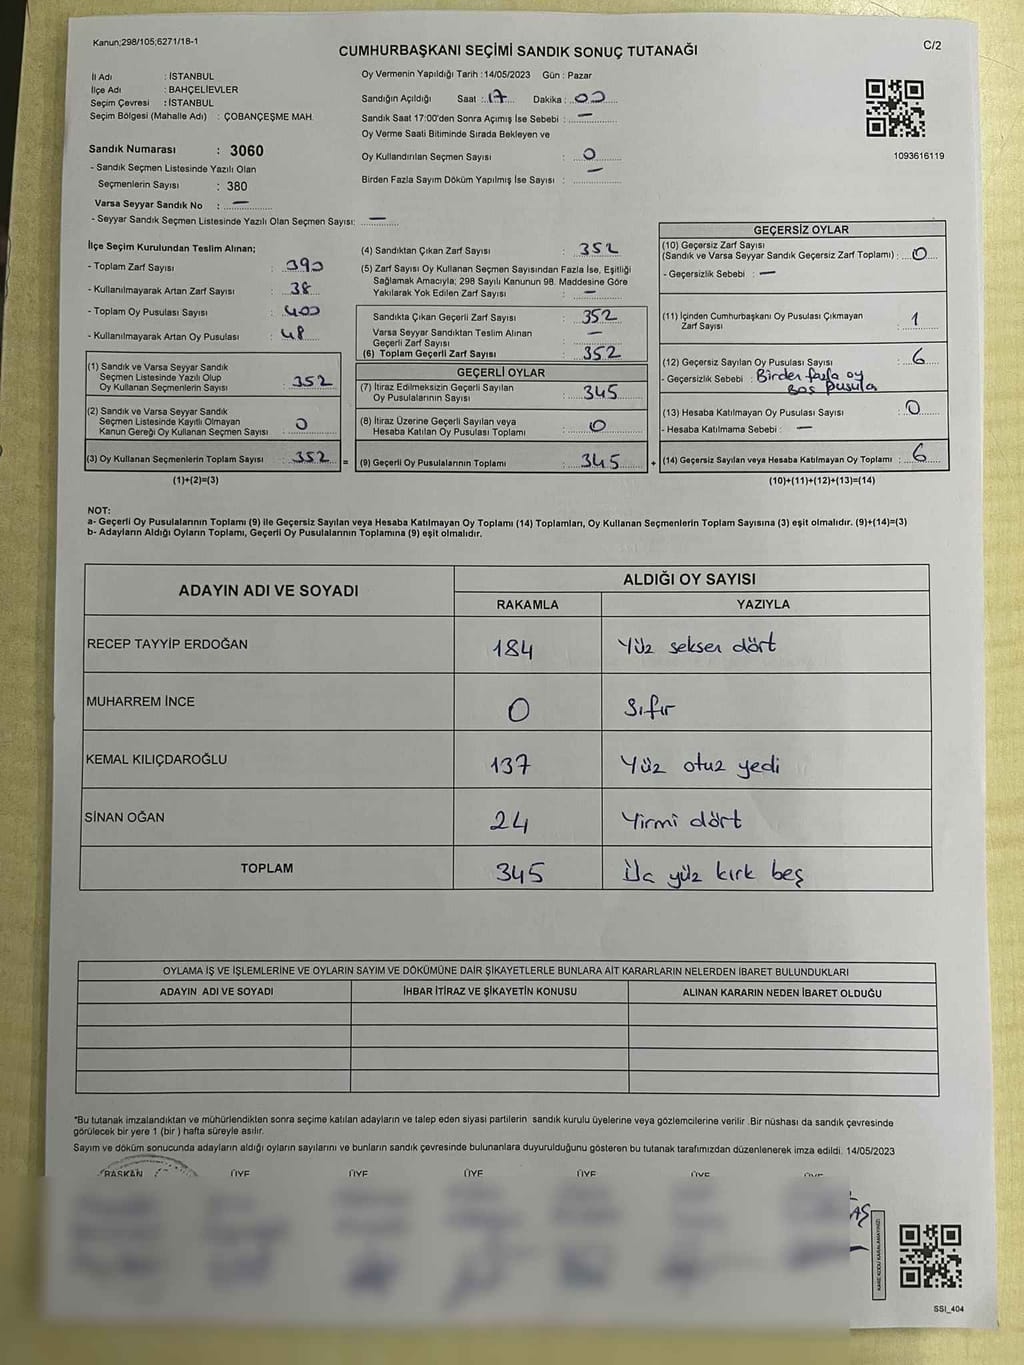 Kanun;298/105;6271/18-1
C/2
CUMHURBAŞKANI SEÇİMİ SANDIK SONUÇ TUTANAĞI
İl Adı : İSTANBUL
İlçe Adı : BAHÇELİEVLER
Seçim Çevresi : İSTANBUL
Seçim Bölgesi (Mahalle Adı) : ÇOBANÇEŞME MAH.
Sandık Numarası : 3060
- Sandık Seçmen Listesinde Yazılı Olan
Seçmenlerin Sayısı : 380
Varsa Seyyar Sandık No : —
- Seyyar Sandık Seçmen Listesinde Yazılı Olan Seçmen Sayısı: —
Oy Vermenin Yapıldığı Tarih : 14/05/2023 Gün : Pazar
Sandığın Açıldığı Saat : 17 Dakika : 00
Sandık Saat 17:00'den Sonra Açımış İse Sebebi : —
Oy Verme Saati Bitiminde Sırada Bekleyen ve
Oy Kullandırılan Seçmen Sayısı : 0
Birden Fazla Sayım Döküm Yapılmış İse Sayısı : —
1093616119
İlçe Seçim Kurulundan Teslim Alınan;
- Toplam Zarf Sayısı : 390
- Kullanılmayarak Artan Zarf Sayısı : 38
- Toplam Oy Pusulası Sayısı : 400
- Kullanılmayarak Artan Oy Pusulası : 48
(1) Sandık ve Varsa Seyyar Sandık
Seçmen Listesinde Yazılı Olup
Oy Kullanan Seçmenlerin Sayısı : 352
(2) Sandık ve Varsa Seyyar Sandık
Seçmen Listesinde Kayıtlı Olmayan
Kanun Gereği Oy Kullanan Seçmen Sayısı : 0
(3) Oy Kullanan Seçmenlerin Toplam Sayısı : 352 =
(1)+(2)=(3)
(4) Sandıktan Çıkan Zarf Sayısı : 352
(5) Zarf Sayısı Oy Kullanan Seçmen Sayısından Fazla İse, Eşitliği
Sağlamak Amacıyla; 298 Sayılı Kanunun 98. Maddesine Göre
Yakılarak Yok Edilen Zarf Sayısı : —
Sandıkta Çıkan Geçerli Zarf Sayısı : 352
Varsa Seyyar Sandıktan Teslim Alınan
Geçerli Zarf Sayısı : —
(6) Toplam Geçerli Zarf Sayısı : 352
GEÇERLİ OYLAR
(7) İtiraz Edilmeksizin Geçerli Sayılan
Oy Pusulalarının Sayısı : 345
(8) İtiraz Üzerine Geçerli Sayılan veya
Hesaba Katılan Oy Pusulası Toplamı : 0
(9) Geçerli Oy Pusulalarının Toplamı : 345 +
GEÇERSİZ OYLAR
(10) Geçersiz Zarf Sayısı
(Sandık ve Varsa Seyyar Sandık Geçersiz Zarf Toplamı) : 0
- Geçersizlik Sebebi : —
(11) İçinden Cumhurbaşkanı Oy Pusulası Çıkmayan
Zarf Sayısı : 1
(12) Geçersiz Sayılan Oy Pusulası Sayısı : 6
- Geçersizlik Sebebi : Birden fazla oy
Boş pusula
(13) Hesaba Katılmayan Oy Pusulası Sayısı : 0
- Hesaba Katılmama Sebebi : —
(14) Geçersiz Sayılan veya Hesaba Katılmayan Oy Toplamı : 6
(10)+(11)+(12)+(13)=(14)
NOT:
a- Geçerli Oy Pusulalarının Toplamı (9) ile Geçersiz Sayılan veya Hesaba Katılmayan Oy Toplamı (14) Toplamları, Oy Kullanan Seçmenlerin Toplam Sayısına (3) eşit olmalıdır. (9)+(14)=(3)
b- Adayların Aldığı Oyların Toplamı, Geçerli Oy Pusulalarının Toplamına (9) eşit olmalıdır.
ADAYIN ADI VE SOYADI
ALDIĞI OY SAYISI
RAKAMLA YAZIYLA
RECEP TAYYİP ERDOĞAN 184 Yüz seksen dört
MUHARREM İNCE 0 Sıfır
KEMAL KILIÇDAROĞLU 137 Yüz otuz yedi
SİNAN OĞAN 24 Yirmi dört
TOPLAM 345 yüz kırk beş
OYLAMA İŞ VE İŞLEMLERİNE VE OYLARIN SAYIM VE DÖKÜMÜNE DAİR ŞİKAYETLERLE BUNLARA AİT KARARLARIN NELERDEN İBARET BULUNDUKLARI
ADAYIN ADI VE SOYADI İHBAR İTİRAZ VE ŞİKAYETİN KONUSU ALINAN KARARIN NEDEN İBARET OLDUĞU
*Bu tutanak imzalandıktan ve mühürlendikten sonra seçime katılan adayların ve talep eden siyasi partilerin sandık kurulu üyelerine veya gözlemcilerine verilir .Bir nüshası da sandık çevresinde
görülecek bir yere 1 (bir ) hafta süreyle asılır.
Sayım ve döküm sonucunda adayların aldığı oyların sayılarını ve bunların sandık çevresinde bulunanlara duyurulduğunu gösteren bu tutanak tarafımızdan düzenlenerek imza edildi. 14/05/2023
BAŞKAN ÜYE ÜYE ÜYE ÜYE ÜYE ÜYE
KARE KODU KARALAMAYINIZ!
SSI_404